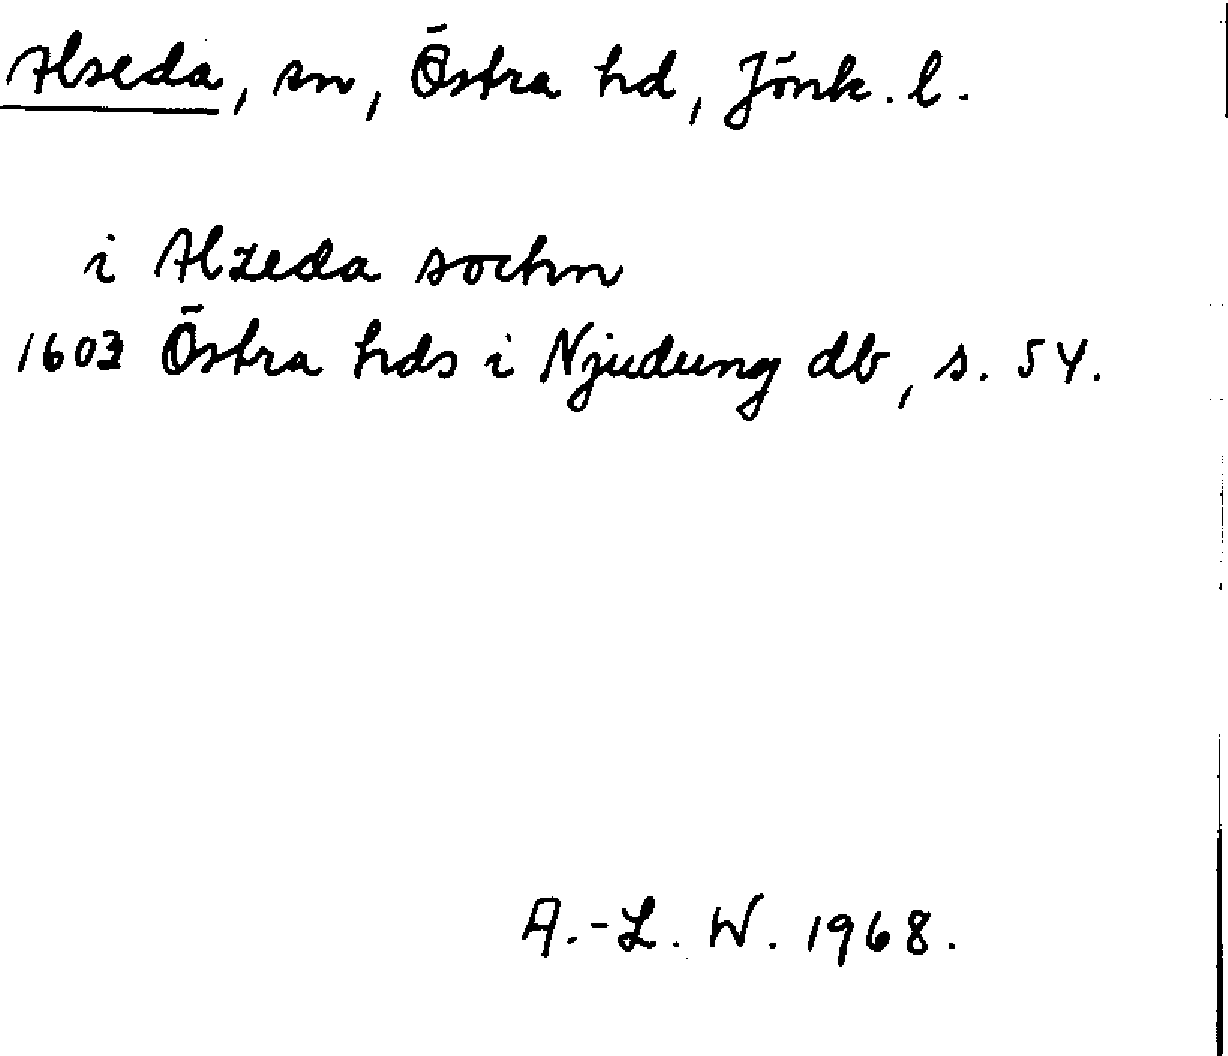 Alseda, sn, Östra hd, Jönk. l.
i Alzeda sochn
1603 Östra hds i Njudung db, s. 54.
A.-L. W. 1968.